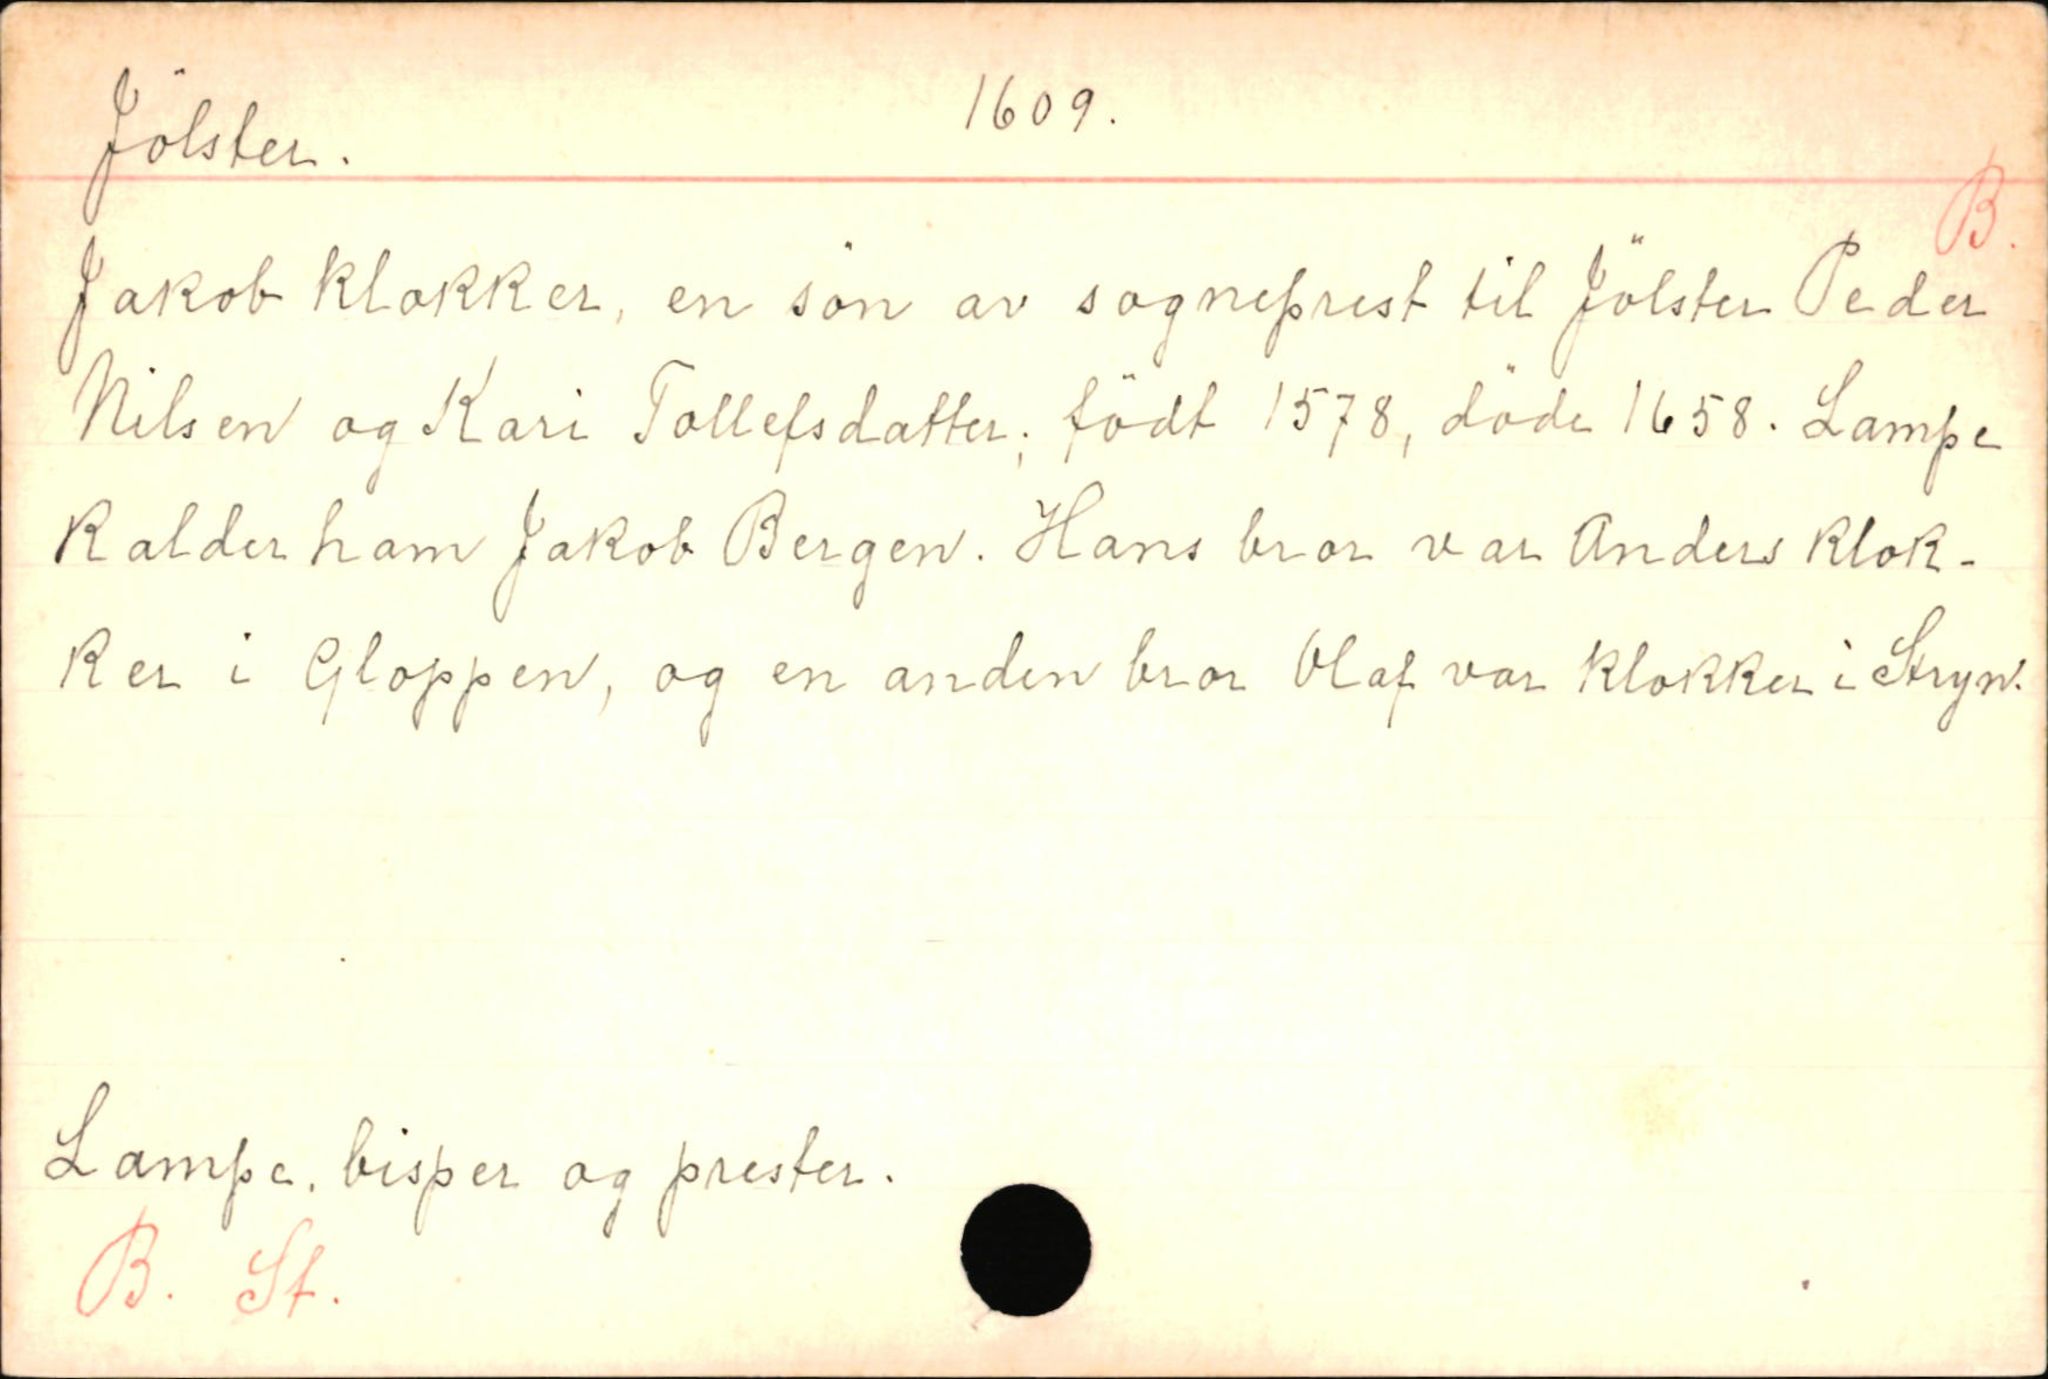 Jölster.
1609.
B.
Jakob klokker, en sön av sogneprest til Jölster Peder
Nilsen og Kari Tollefsdatter; födt 1578, döde 1658. Lampe
kalder ham Jakob Bergen. Hans bror var Anders klok-
ker i Gloppen, og en anden bror Olaf var klokker i Stryn.
Lampe. bisper og prester.
B. St.